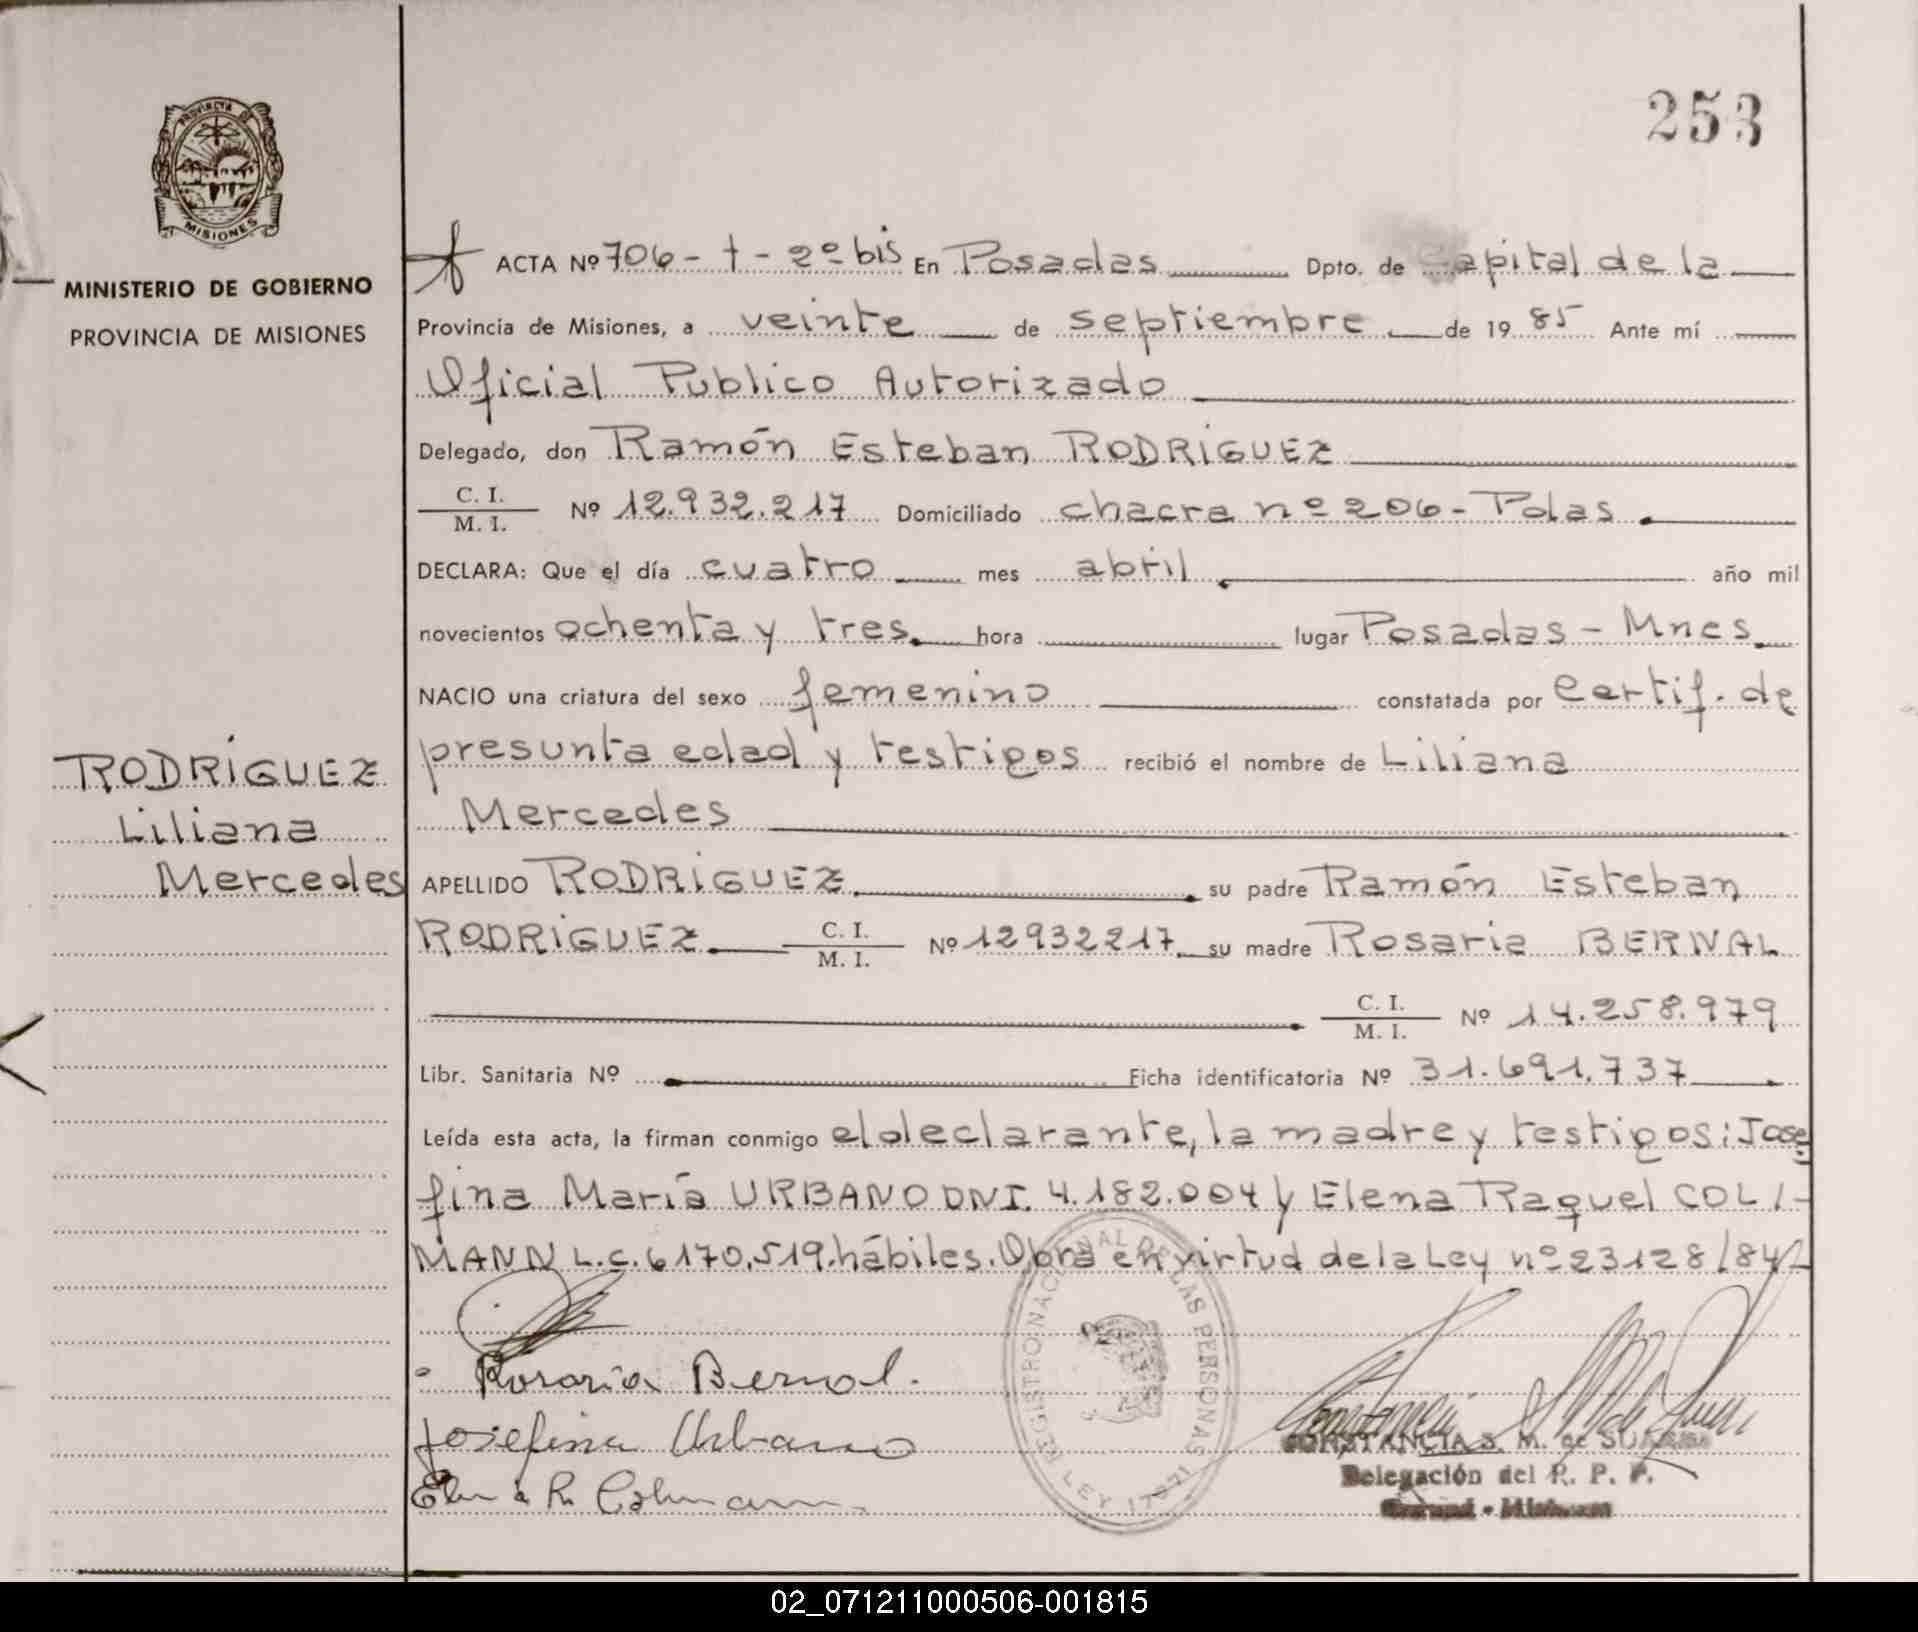 253
PROVINCIA DE
MISIONES
MINISTERIO DE GOBIERNO
PROVINCIA DE MISIONES
ACTA Nº 706 - t - 2º bis En Posadas Dpto. de Capital de la
Provincia de Misiones, a veinte de septiembre de 19 85 Ante mí
Oficial Publico Autorizado
Delegado, don Ramón Esteban RODRÍGUEZ
C. I.
M. I. Nº 12.932.217 Domiciliado chacra nº 206 - Pdas
DECLARA: Que el día cuatro mes abril año mil
novecientos ochenta y tres. hora lugar Posadas - Mnes
NACIO una criatura del sexo femenino constatada por Certif. de
presunta edad y testigos recibió el nombre de Liliana
Mercedes
RODRÍGUEZ
Liliana
Mercedes
APELLIDO RODRÍGUEZ su padre Ramón Esteban
RODRÍGUEZ C. I.
M. I. Nº 12932217 su madre Rosaria BERNAL
C. I.
M. I. Nº 14.258.979
Libr. Sanitaria Nº Ficha identificatoria Nº 31.691.737
Leída esta acta, la firman conmigo el declarante, la madre y testigos: Jose
fina María URBANO DNI. 4.182.004 y Elena Raquel COL
MANN L.C. 6170.519. hábiles. Obra en virtud de la Ley nº 23128/84
Rosaria Bernal.
Josefina Urbano
Elena R. Colmann
REGISTRO NACIONAL DE LAS PERSONAS
LEY 17671
CONSTANCIA S. M. de
Delegación del R. P. P.
02_071211000506-001815